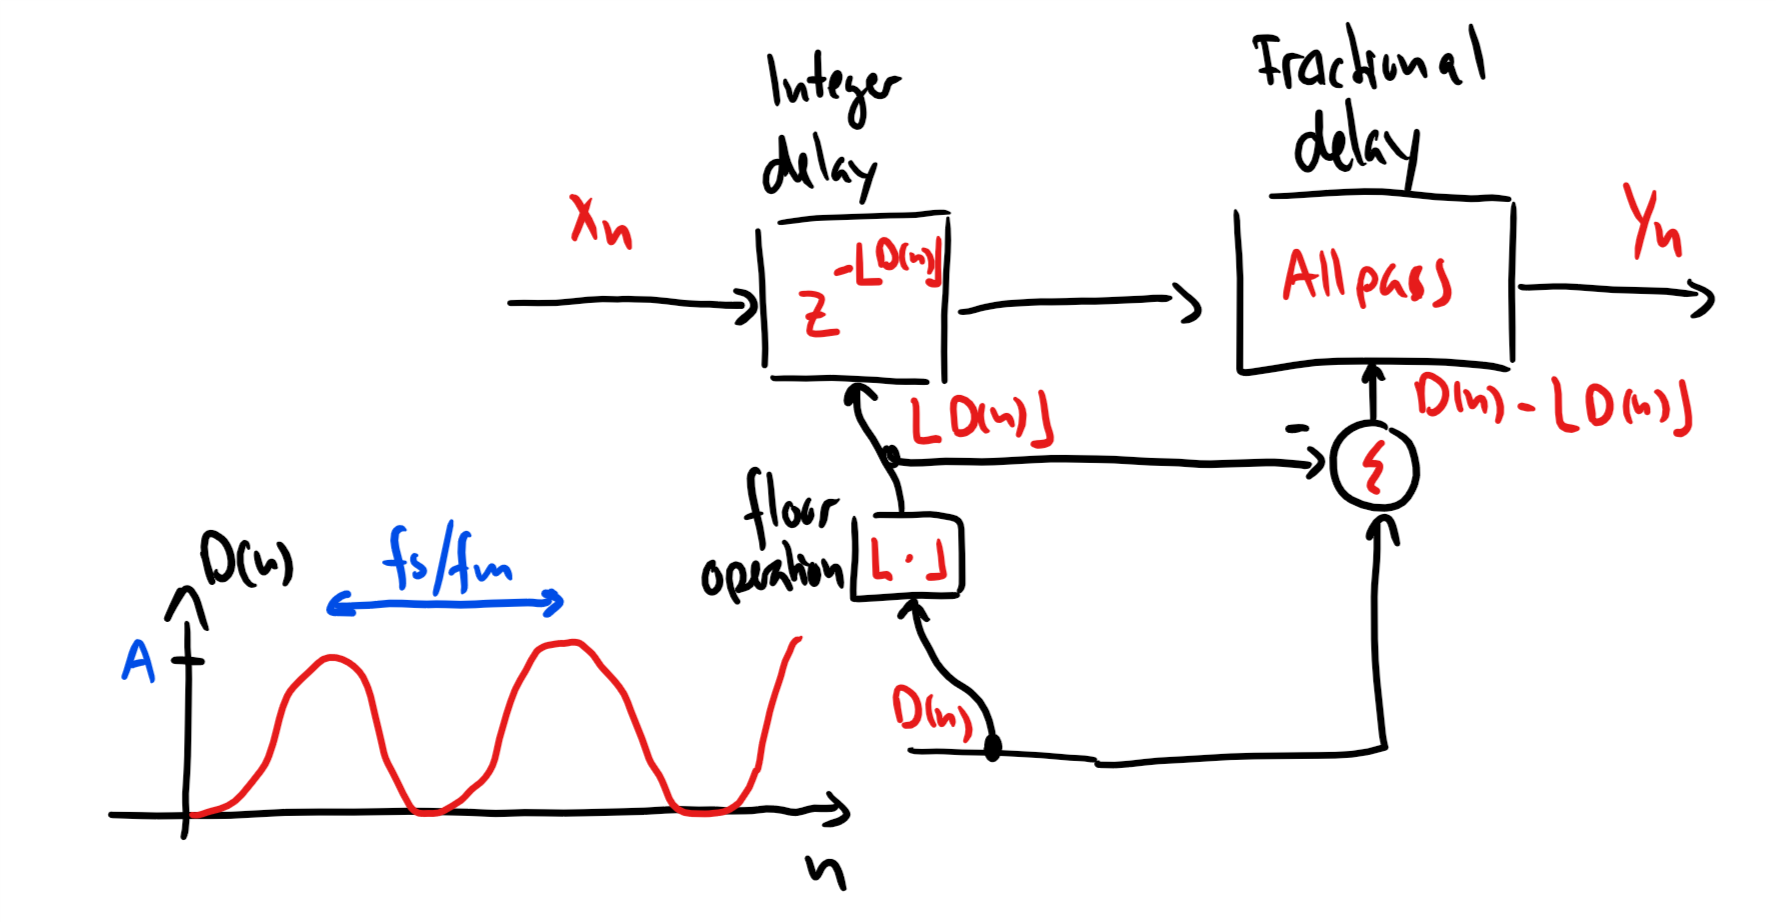 Integer
delay
Fractional
delay
Xn
z^-⌊D(n)⌋
Allpass
Yn
⌊D(n)⌋
-
D(n) - ⌊D(n)⌋
Σ
floor
operation
⌊·⌋
D(n)
D(n)
fs/fm
A
n